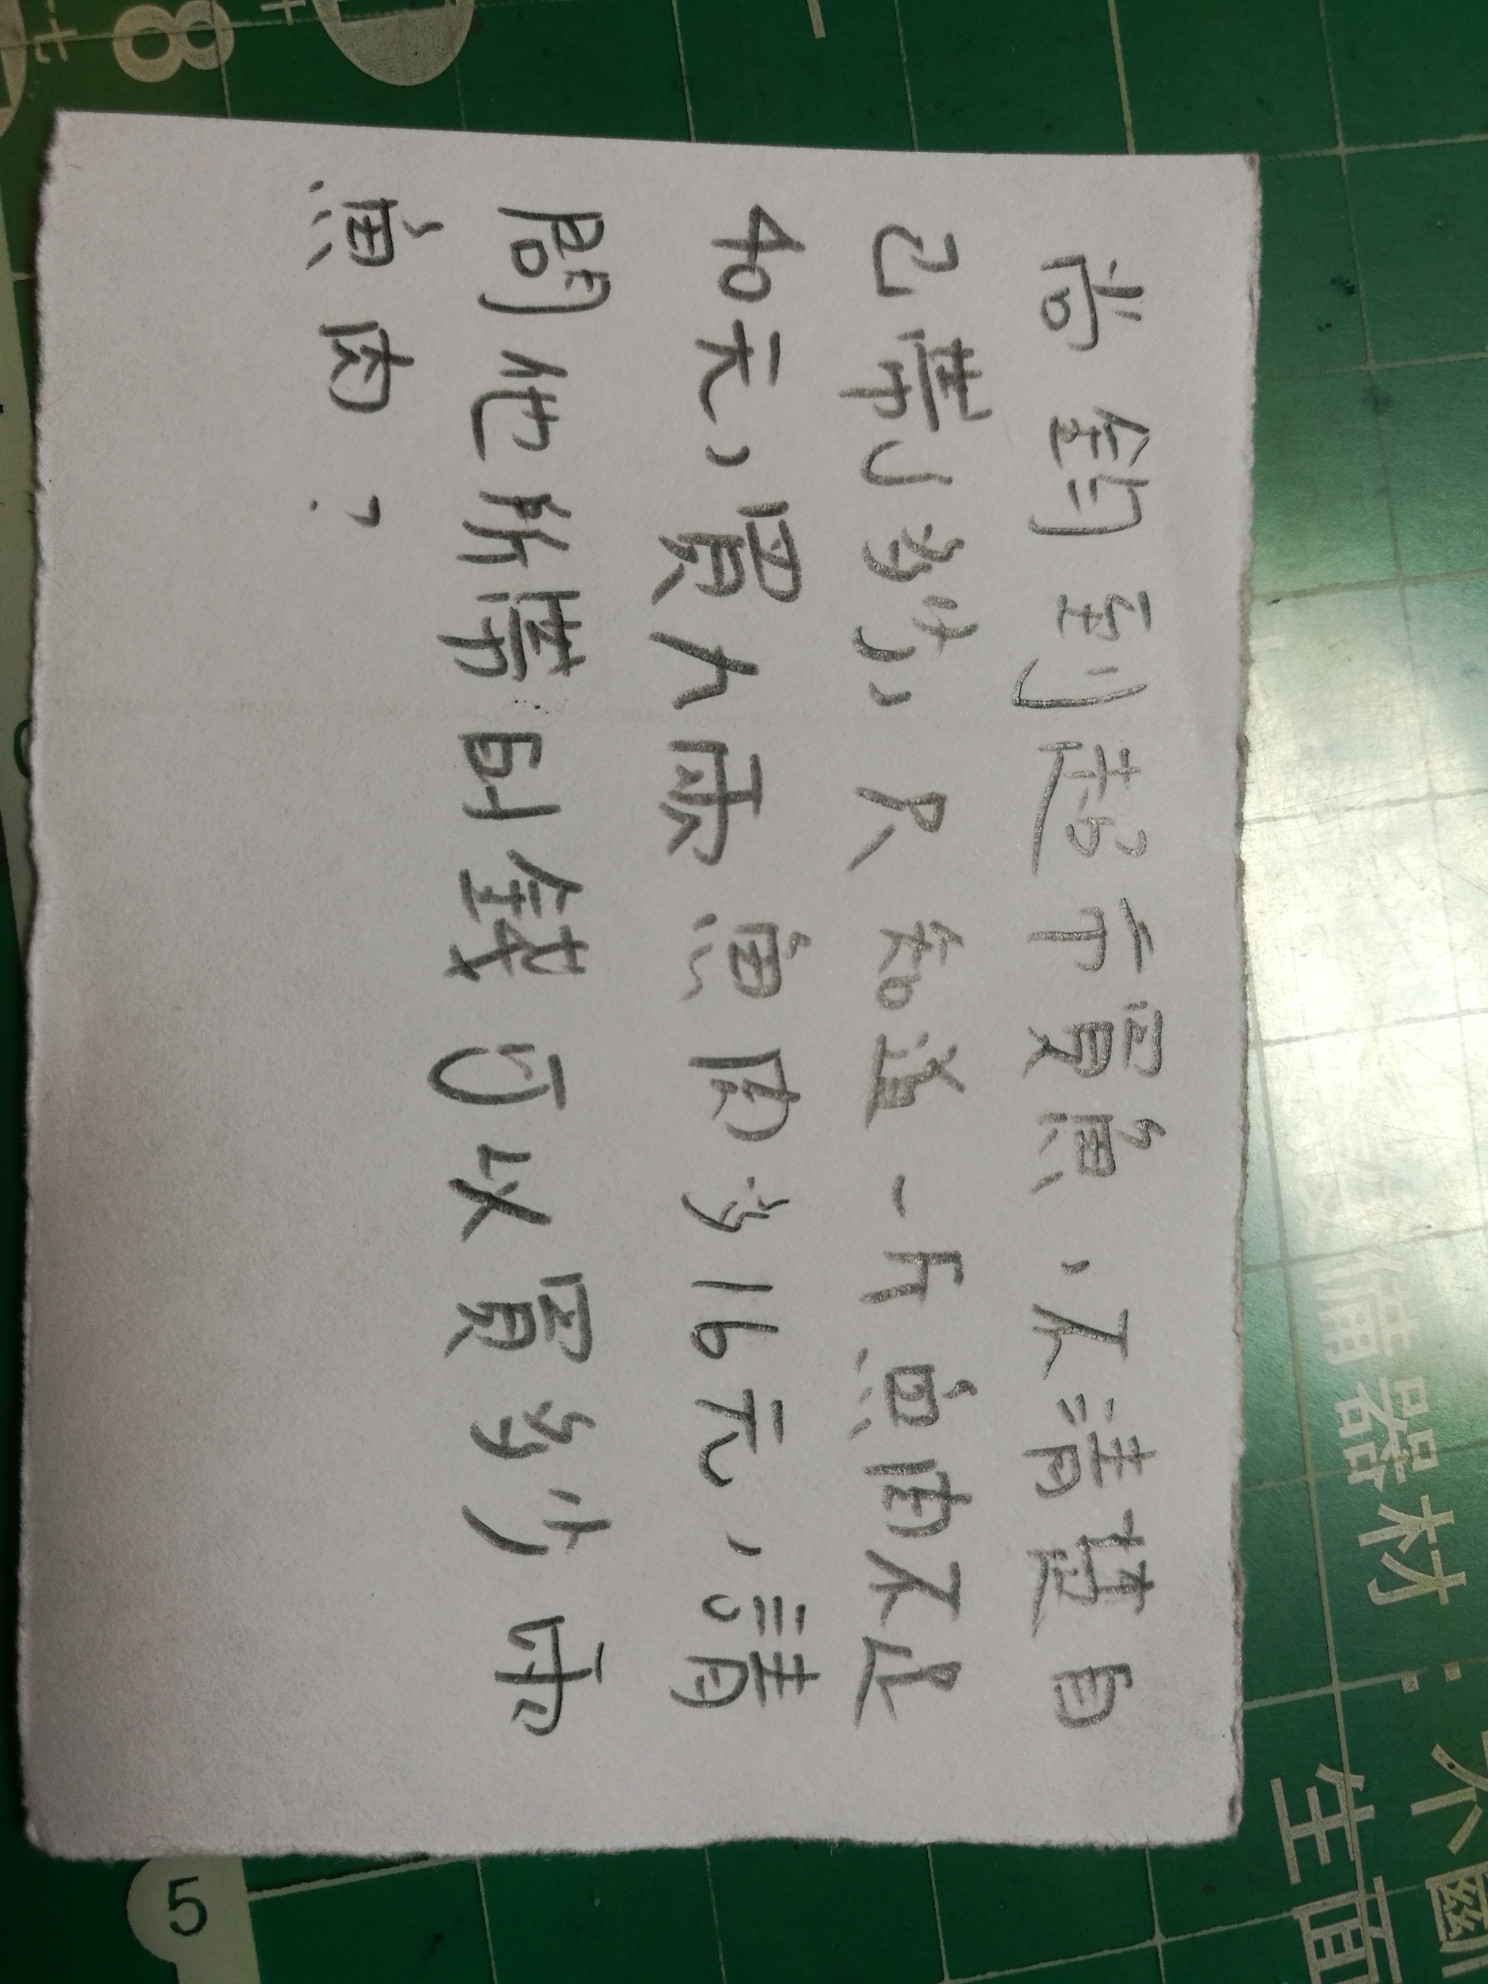 尚鈞到超市買魚,不清楚自
己帶了多少,只知道一片魚肉不足
40元,買八兩魚肉多16元,請
問他所帶的錢可以買多少兩
魚肉?
備器材:
生面
8
5